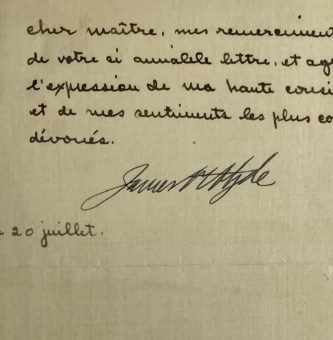 cher maître, mes remerciment
de votre si aimable lettre, et ag
l'expression de ma haute consi
et de mes sentiments les plus co
dévoués.
James H Hyde
20 juillet.